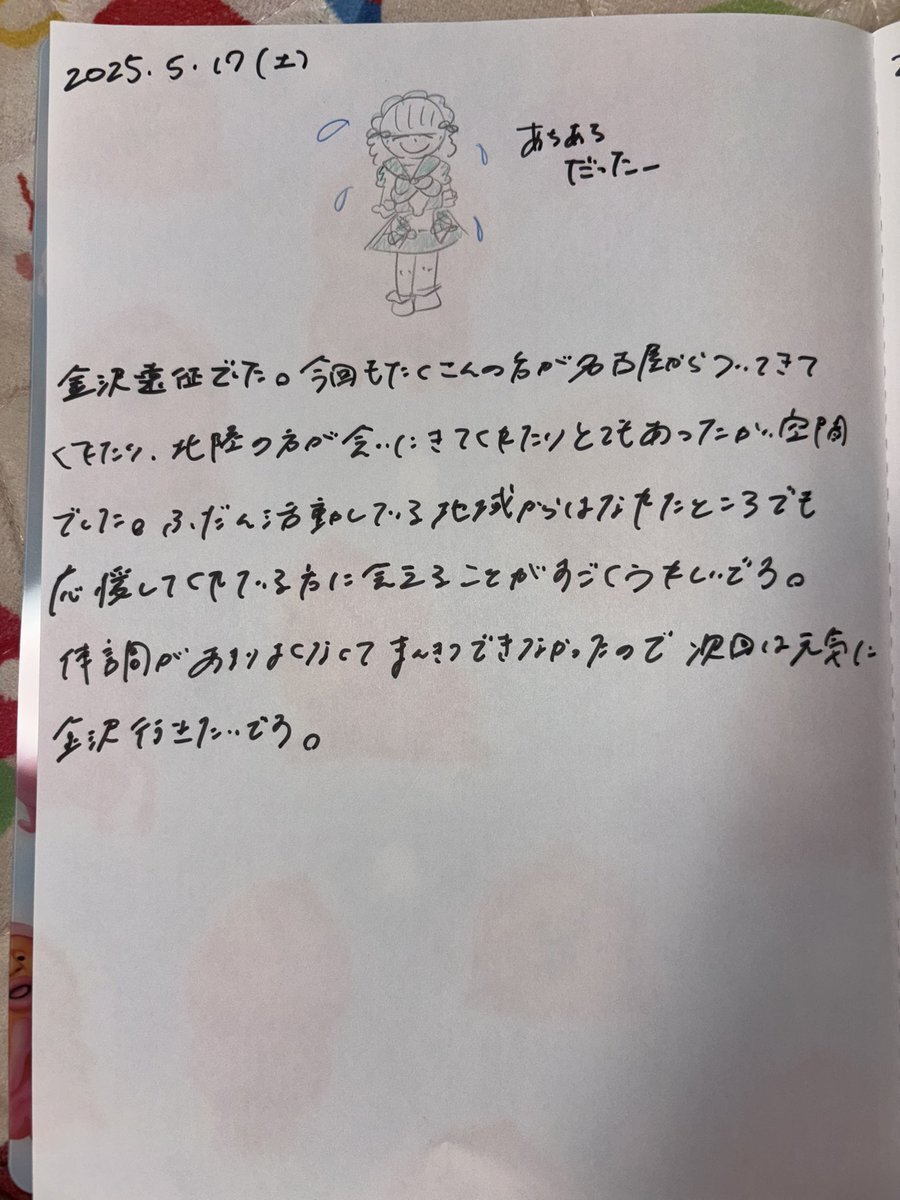 2025.5.17(土)
あちあち
だったー
金沢遠征でした。今回もたくさんの方が名古屋からついてきて
くれたり、北陸の方が会いにきてくれたりとてもあったかい空間
でした。ふだん活動している地域からはなれたところでも
応援してくれている方に会えることがすごくうれしいです。
体調があまりよくなくてまんきつできなかったので次回は元気に
金沢行きたいです。